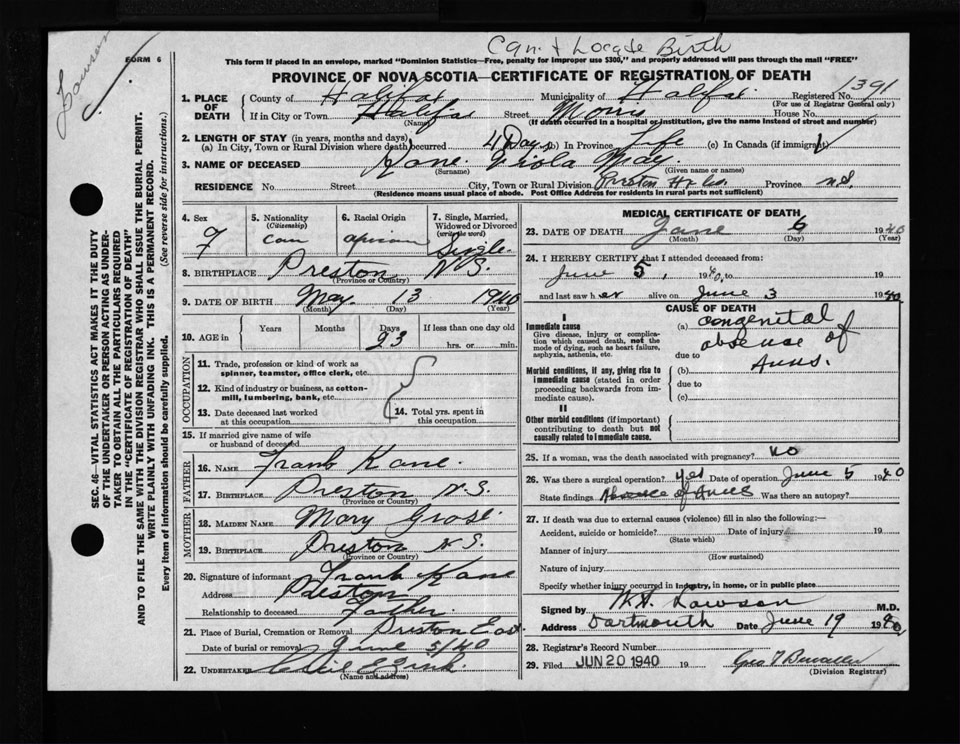 Can't Locate Birth
Lawson
FORM 6
This form if placed in an envelope, marked "Dominion Statistics—Free, penalty for improper use $300," and properly addressed will pass through the mail "FREE"
PROVINCE OF NOVA SCOTIA—CERTIFICATE OF REGISTRATION OF DEATH
1. PLACE OF DEATH
County of Halifax Municipality of Halifax Registered No. 1391
(For use of Registrar General only)
If in City or Town Halifax Street Morris House No.
(Name) (If death occurred in a hospital or institution, give the name instead of street and number)
2. LENGTH OF STAY (in years, months and days)
(a) In City, Town or Rural Division where death occurred 4 Days (b) In Province Life (c) In Canada (if immigrant)
3. NAME OF DECEASED Kane Viola May.
(Surname) (Given name or names)
RESIDENCE No. Street City, Town or Rural Division Preston Hx Co. Province N.S.
(Residence means usual place of abode. Post Office Address for residents in rural parts not sufficient)
4. Sex F
5. Nationality (Citizenship) Can
6. Racial Origin African
7. Single, Married, Widowed or Divorced (write the word) Single
8. BIRTHPLACE Preston N.S.
(Province or Country)
9. DATE OF BIRTH May 13 1940
(Month) (Day) (Year)
10. AGE in Years Months Days 23 If less than one day old hrs. or min.
OCCUPATION
11. Trade, profession or kind of work as spinner, teamster, office clerk, etc.
12. Kind of industry or business, as cotton-mill, lumbering, bank, etc.
13. Date deceased last worked at this occupation
14. Total yrs. spent in this occupation
15. If married give name of wife or husband of deceased
FATHER
16. NAME Frank Kane.
17. BIRTHPLACE Preston N.S.
(Province or Country)
MOTHER
18. MAIDEN NAME Mary Grose
19. BIRTHPLACE Preston N.S.
(Province or Country)
20. Signature of informant Frank Kane
Address Preston
Relationship to deceased Father.
21. Place of Burial, Cremation or Removal Preston East
Date of burial or removal June 5/40
22. UNDERTAKER
(Name and address)
MEDICAL CERTIFICATE OF DEATH
23. DATE OF DEATH June 1940
(Month) (Day) (Year)
24. I HEREBY CERTIFY that I attended deceased from:
June 5, 1940, to 19
and last saw her alive on June 3 1940
CAUSE OF DEATH
I
Immediate cause
Give disease, injury or complication which caused death, not the mode of dying, such as heart failure, asphyxia, asthenia, etc.
(a) Congenital
absence of
due to
Anus.
Morbid conditions, if any, giving rise to immediate cause (stated in order proceeding backwards from immediate cause).
(b)
due to
(c)
II
Other morbid conditions (if important) contributing to death but not causally related to immediate cause.
25. If a woman, was the death associated with pregnancy? No
26. Was there a surgical operation? Yes Date of operation June 5 1940
State findings Absence of Anus Was there an autopsy?
27. If death was due to external causes (violence) fill in also the following:—
Accident, suicide or homicide? Date of injury 19
(State which)
Manner of injury
(How sustained)
Nature of injury
Specify whether injury occurred in industry, in home, or in public place
Signed by W.H. Lawson M.D.
Address Dartmouth Date June 19 1940
28. Registrar's Record Number
29. Filed JUN 20 1940 19
(Division Registrar)
SEC. 46—VITAL STATISTICS ACT MAKES IT THE DUTY
OF THE UNDERTAKER OR PERSON ACTING AS UNDER-
TAKER TO OBTAIN ALL THE PARTICULARS REQUIRED
IN THE "CERTIFICATE OF REGISTRATION OF DEATH"
AND TO FILE THE SAME WITH THE DIVISION REGISTRAR WHO SHALL ISSUE THE BURIAL PERMIT.
WRITE PLAINLY WITH UNFADING INK. THIS IS A PERMANENT RECORD.
Every item of information should be carefully supplied. (See reverse side for instructions.)